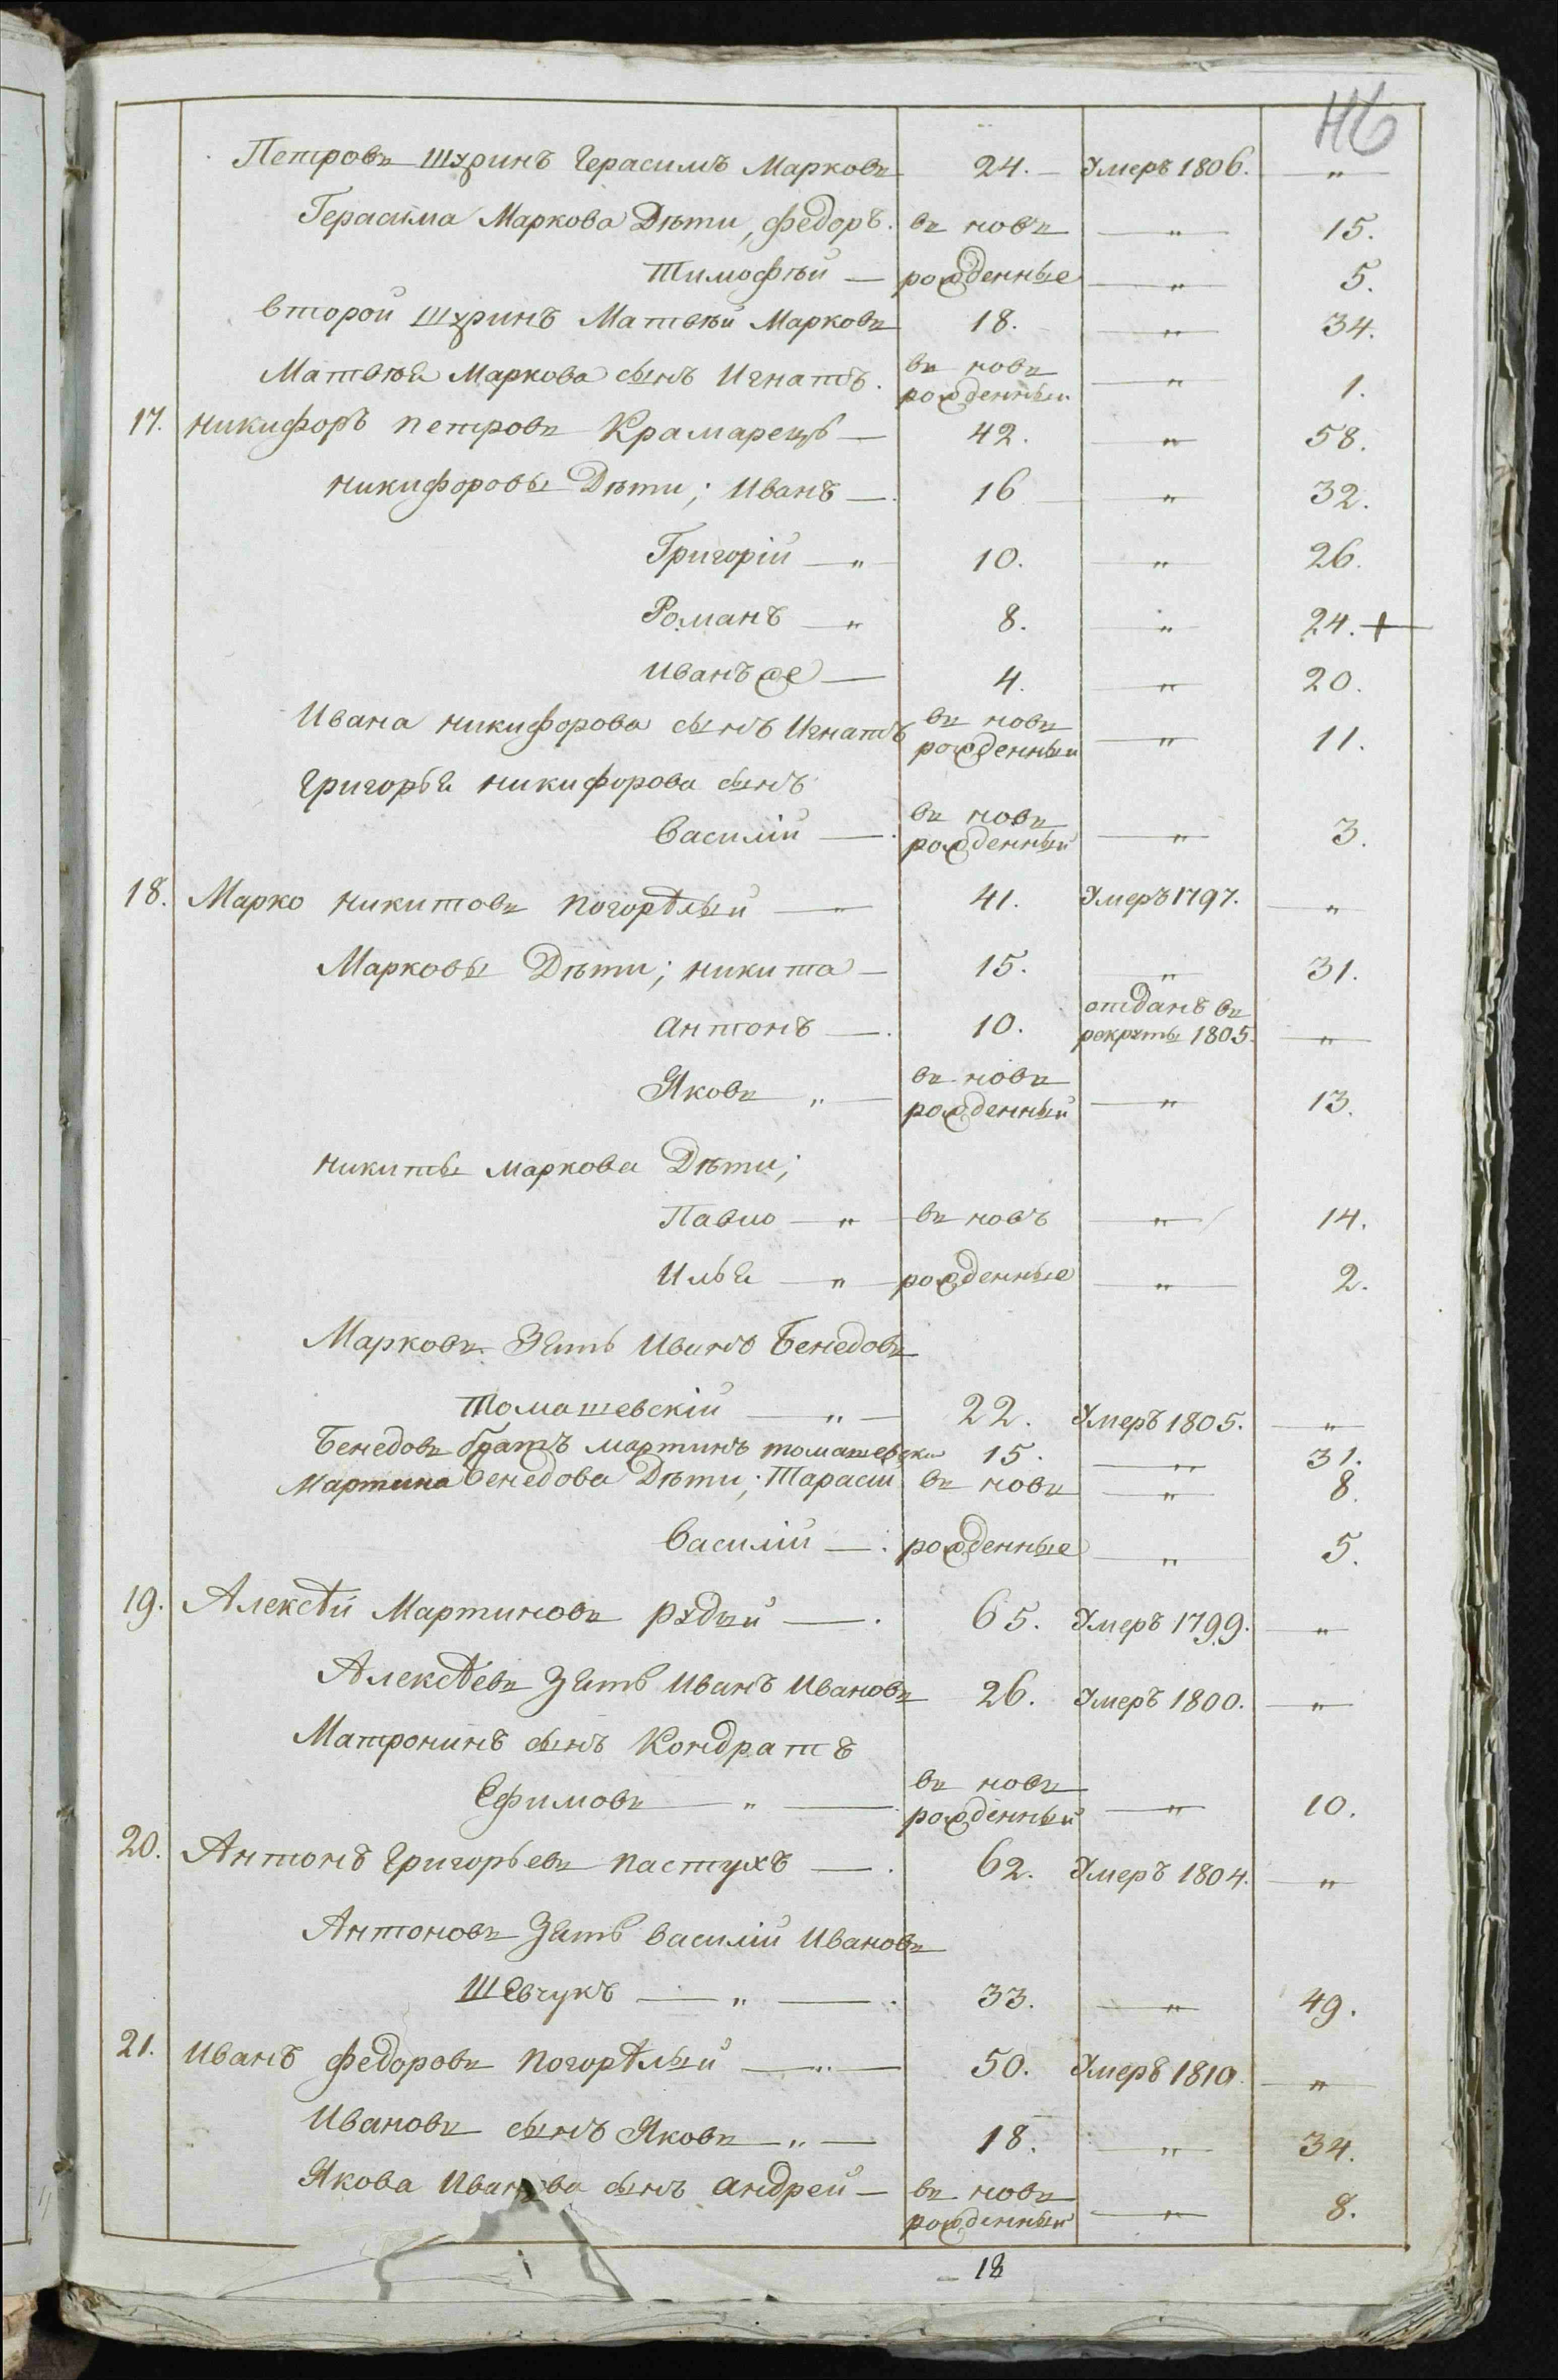 46
Петровъ шуринъ Герасимъ Марковъ 24. Умеръ 1806. "
Герасима Маркова Дѣти, Федоръ. въ новъ " 15.
Тимофѣй рожденные " 5.
второй шуринъ Матвѣй Марковъ 18. " 34.
Матвѣя Маркова сынъ Игнатъ. въ новъ рожденный " 1.
17. Никифоръ Петровъ Крамарецъ 42. " 58.
Никифоровы Дѣти; Иванъ 16 " 32.
Григорій " 10. " 26.
Романъ " 8. " 24. +
Иванъ же 4. " 20.
Ивана Никифорова сынъ Игнатъ въ новъ рожденный " 11.
Григорья Никифорова сынъ
Василій въ новъ рожденный " 3.
18. Марко Никитовъ Погорѣлый " 41. Умеръ 1797. "
Марковы Дѣти; Никита 15. " 31.
Антонъ 10. отданъ въ рекруты 1805. "
Яковъ " въ новъ рожденный " 13.
Никиты Маркова Дѣти;
Павло " въ новъ " 14.
Илья " рожденные " 2.
Марковъ Зять Иванъ Бенедовъ
Томашевскій " 22. Умеръ 1805. "
Бенедовъ братъ Мартинъ Томашевски 15. " 31.
Мартина Бенедова Дѣти; Тарасій въ новъ " 8.
Василій рожденные " 5.
19. Алексѣй Мартиновъ Рудый 65. Умеръ 1799. "
Алексѣевъ Зять Иванъ Ивановъ 26. Умеръ 1800. "
Матронинъ сынъ Кондратъ
Ефимовъ " въ новъ рожденный " 10.
20. Антонъ Григорьевъ Пастухъ 62. Умеръ 1804. "
Антоновъ Зять Василій Ивановъ
Шевчукъ " 33. " 49.
21. Иванъ Федоровъ Погорѣлый " 50. Умеръ 1810. "
Ивановъ сынъ Яковъ " 18. " 34.
Якова Иванова сынъ Андрей въ новъ рожденный " 8.
18